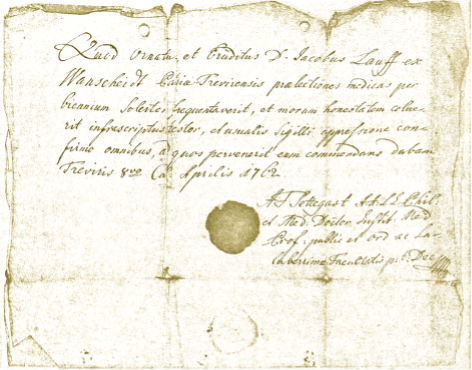 Quod Ornatus, et Eruditus D. Jacobus Lauff ex
Wanscheidt Patria Trevirensis prælectiones medicas per
biennium Solerter frequentaverit, et morum honestatem colue-
rit infrascriptus testor, et usualis Sigilli appressione con-
firmo omnibus, ad quos pervenerit eam commendans dabam
Treviris 8vo Cal Aprilis 1762
et Med. Doctor, Instit. Med
Prof. public et ord ac
Facultatis p.t. Dec